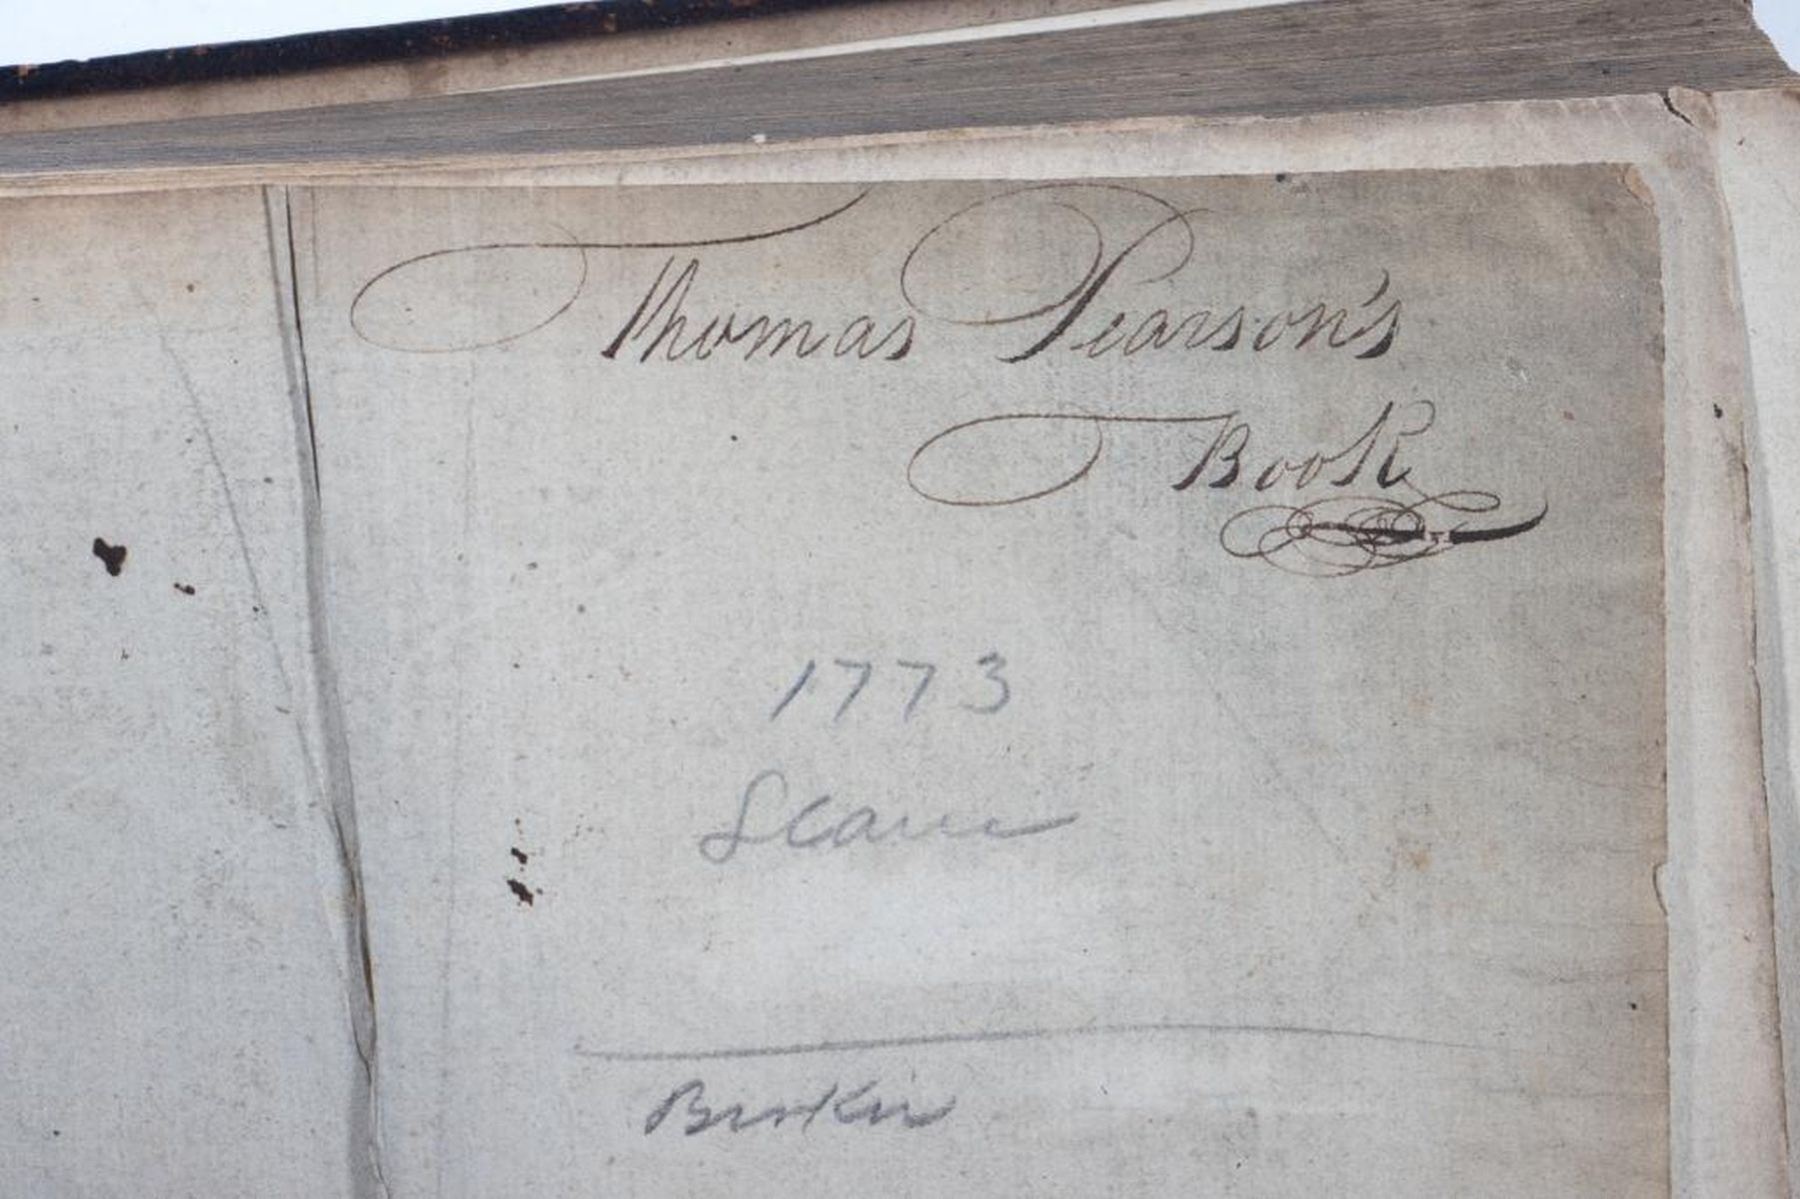 Thomas Pearson's
Book
1773
Scarce